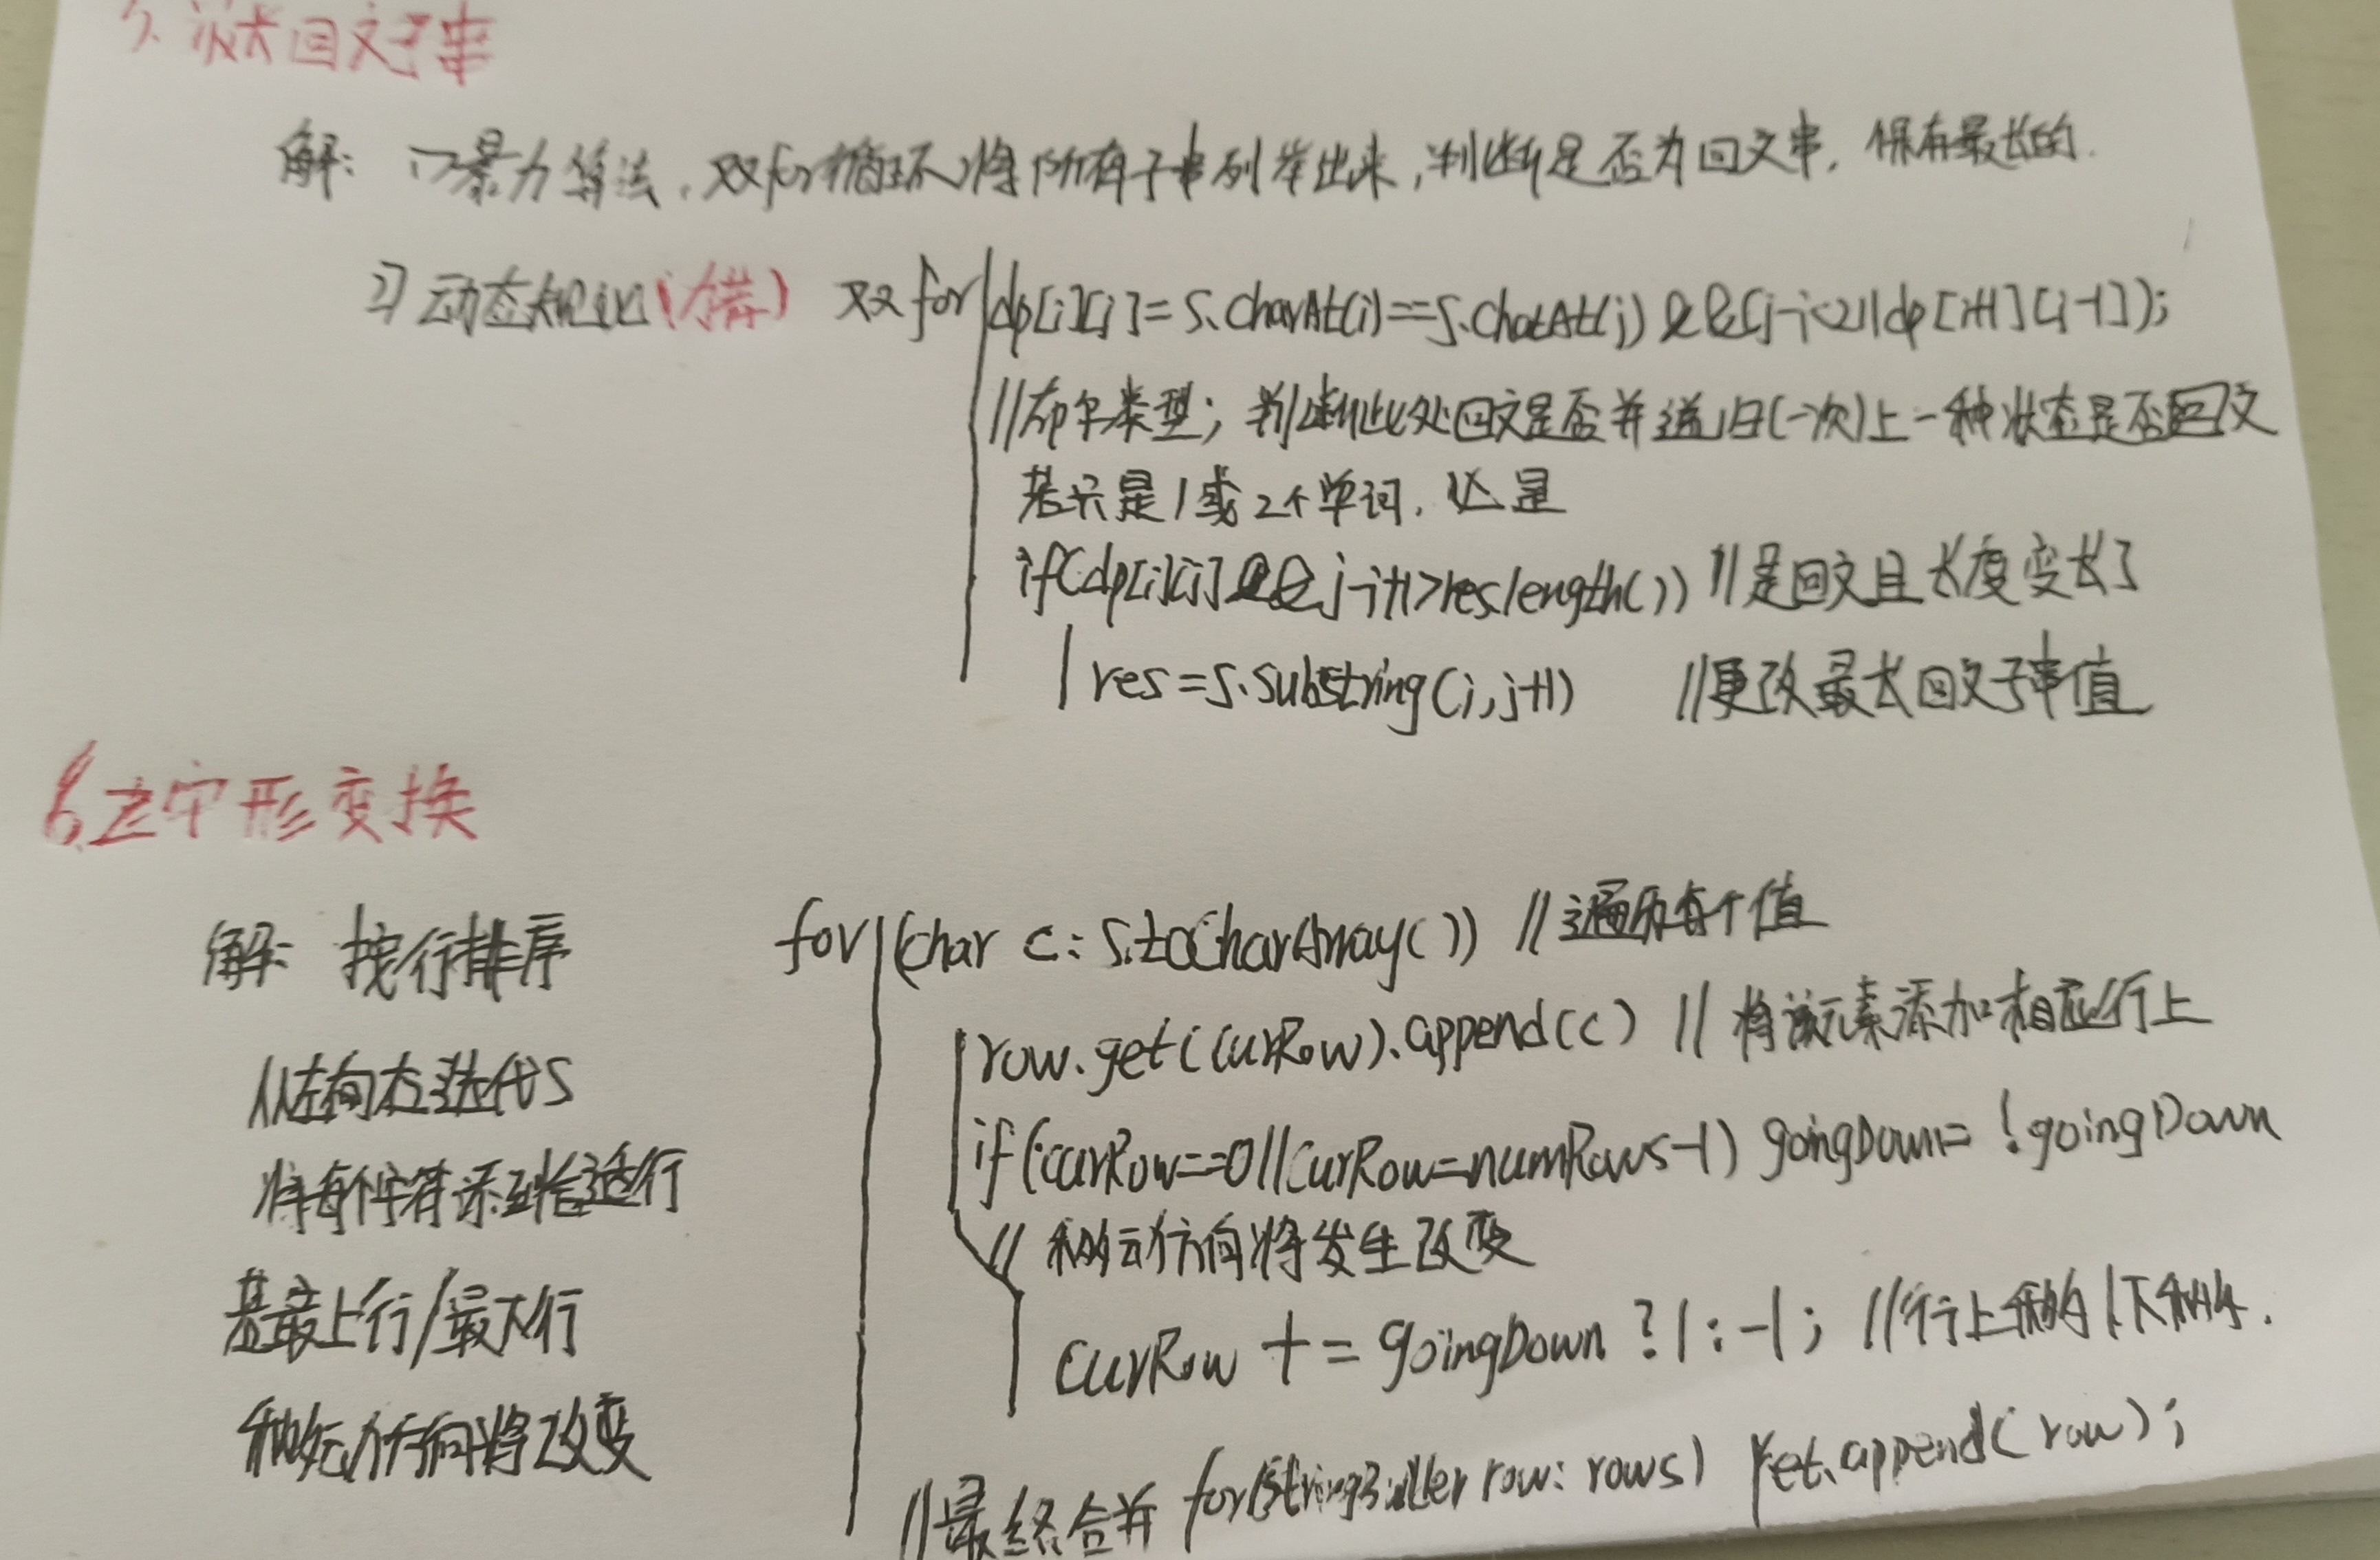 5. 最长回文子串
解: 1> 暴力算法, 双for循环将所有子串列举出来, 判断是否为回文串, 保存最长的.
2> 动态规划(推荐) 双for dp[i][j]=s.charAt(i)==s.chatAt(j) &&(j-i<2||dp[i+1][j-1]);
//布尔类型; 判断此处回文是否并递归(一次)上一种状态是否回文
若只是1或2个单词, 必是
if(dp[i][j] && j-i+1>res.length()) //是回文且长度变长了
res=s.substring(i,j+1) //更改最长回文子串值
6.Z字形变换
解: 按行排序
从左向右迭代s
将每个字符添到合适行
若最上行/最下行
移动方向将改变
for (char c: s.toCharArray()) //遍历每个值
row.get(curRow).append(c) //将该元素添加相应行上
if(curRow==0||curRow=numRows-1) goingDown= !goingDown
//移动方向将发生改变
curRow += goingDown ? 1 : -1; //行上移动 下移动.
//最终合并 for(StringBuilder row: rows) ret.append(row);